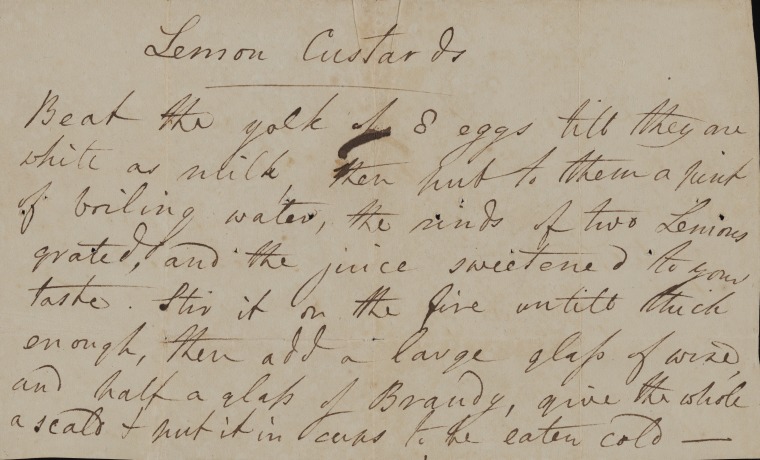 Lemon Custards
Beat the yolk of 8 eggs till they are
white as milk, then put to them a pint
of boiling water, the rinds of two Lemons
grated, and the juice sweetened to your
taste. Stir it on the fire untill thick
enough, then add a large glaſs of wine,
and half a glaſs of Brandy, give the whole
a scald & put it in cups to be eaten cold —